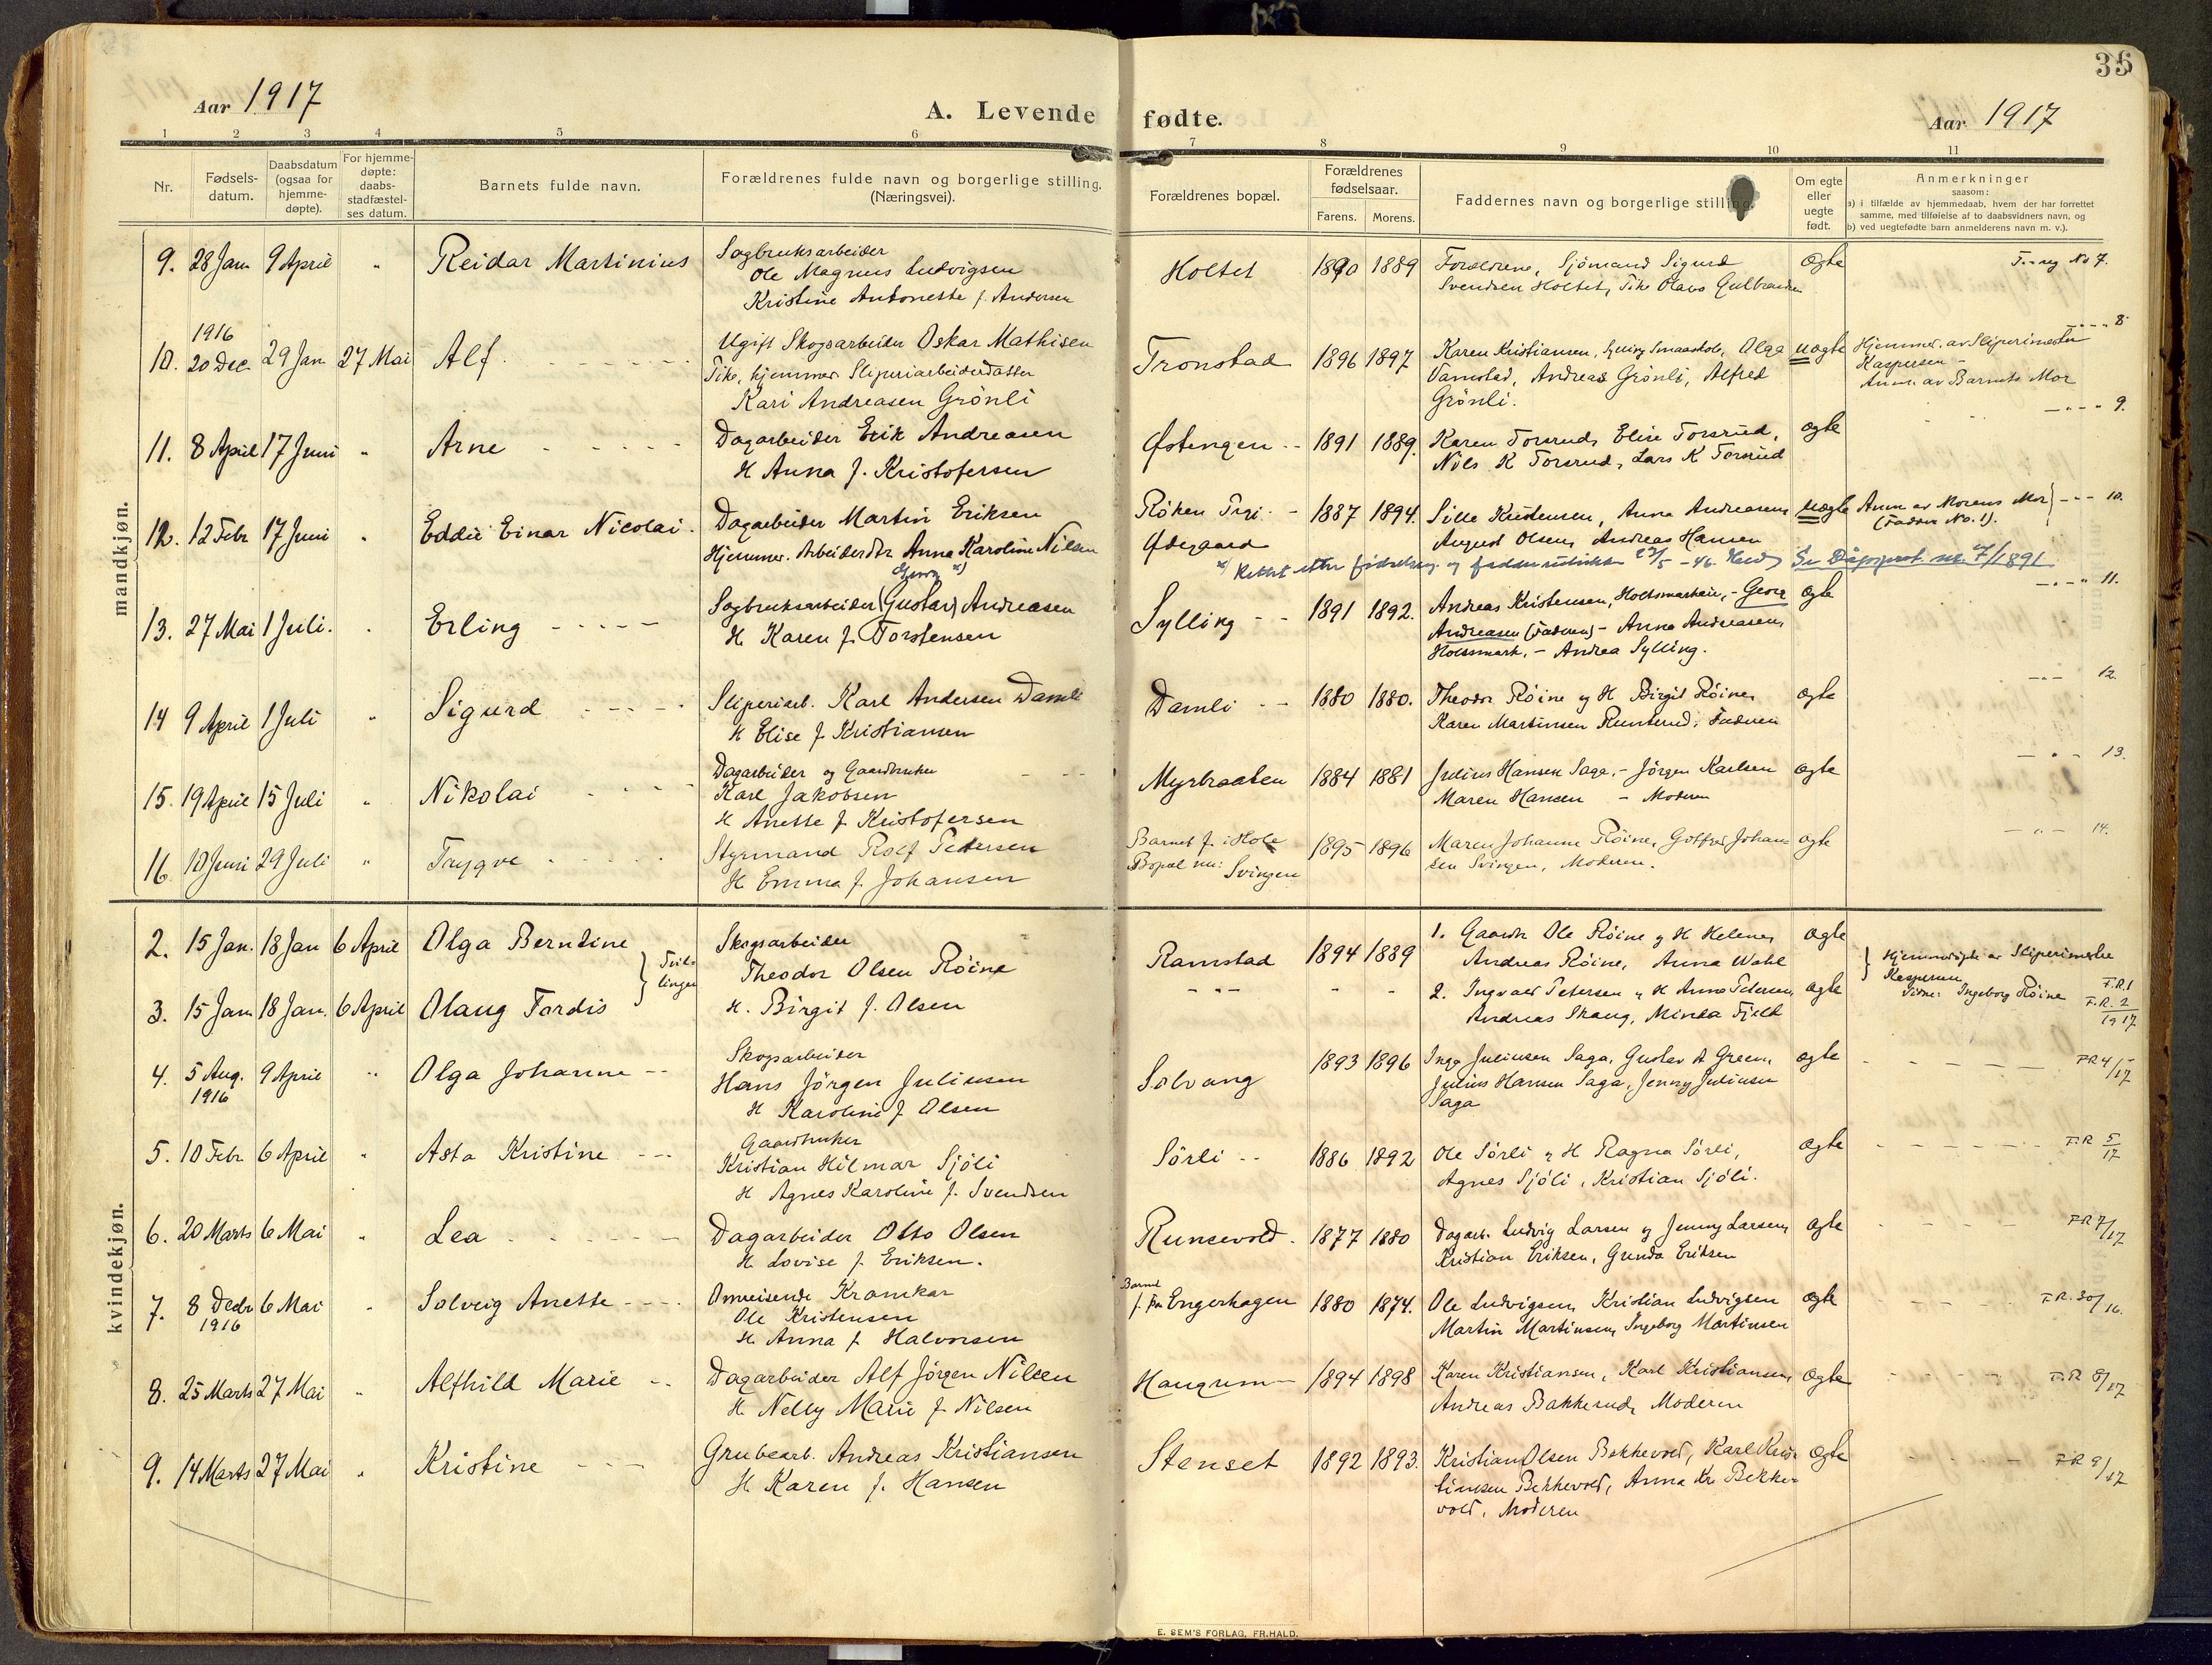 35
Aar 1917
A. Levende fødte.
Aar 1917
1 2 3 4 5 6 7 8 9 10 11
Nr.
Fødsels-
datum.
Daabsdatum
(ogsaa for
hjemme-
døpte).
For hjemme-
døpte:
daabs-
stadfæstel-
ses datum.
Barnets fulde navn.
Forældrenes fulde navn og borgerlige stilling.
(Næringsvei).
Forældrenes bopæl.
Forældrenes
fødselsaar.
Farens. Morens.
Faddernes navn og borgerlige stilling.
Om egte
eller
uegte
født.
Anmerkninger
saasom:
a) i tilfælde av hjemmedaab, hvem der har forrettet
samme, med tilføielse af to daabsvidners navn, og
b) ved uegtefødte barn anmelderens navn m. v.).
mandkjøn.
9. 28 Jan 9 April " Reidar Martinius
Sagbruksarbeider
Ole Magnus Ludvigsen
Kristine Antonette f. Andersen
Holtet 1890 1889
Forældrene, Sjömand Sigurd
Svendsen Holtet, Pike Olava Gulbrandsen
Ogte
F. reg No 7.
1916
10. 20 Dec. 29 Jan 27 Mai Alf
Ugift Skogsarbeider Oskar Mathisen
Pike, hjemmev. Sliperiarbeiderdatter
Kari Andreasen Grönli
Tronstad 1896 1897
Karen Kristiansen, Olga
Ramstad, Andreas Grönli, Alfred
Grönli.
uogte
Hjemmed. av Sliperimester
Kaspersen -
Anm. av Barnets Mor
8
11. 8 April 17 Juni " Arne
Dagarbeider Erik Andreasen
H Anna f. Kristofersen
Østengen 1891 1889.
Karen Torsrud, Elise Torsrud,
Nils K Torsrud, Lars K Torsrud
ogte
9.
12. 12 Febr 17 Juni " Eddie Einar Nicolai
Dagarbeider Martin Eriksen
Hjemmev. Arbeiderdtr Anna Karoline Nilsen
Röken Prgj.
Ødegaard
1887 1894.
Sille Kristensen, Anna Andreasen
August Olsen, Andreas Hansen
uogte
Anm av Morens Mor
(Fadder No. 1).
10.
x) Rettet etter fødselsreg. og fadderrubrikken 23/5 - 46. Se Dåpsprot. nr. 7/1891
Georg x)
13. 27 Mai 1 Juli. Erling
Sagbruksarbeider (Gustav) Andreasen
H Karen f. Torstensen
Sylling 1891 1892.
Andreas Kristensen, Holtsmarkeie, - Georg
Andreasen (Faderen) - Anna Andreasen,
Holtsmark, - Andrea Sylling.
ogte
11.
14 9 April 1 Juli " Sigurd
Sliperiarb. Karl Andersen Damli
H Elise f. Kristiansen
Damli 1880 1880.
Theodor Röine og H Birgit Röine,
Karen Martinsen Runterud, Faderen
ogte
12.
15. 19 April 15 Juli " Nikolai
Dagarbeider og Gaardbruker
Karl Jakobsen
H Anette f. Kristofersen
Myrbraaten 1884 1881
Julius Hansen Saga, - Jörgen Karlsen
Maren Hansen - Moderen
ogte
13.
16 10 Juni 29 Juli " Trygve
Styrmand Rolf Pedersen
H Emma f. Johansen
Barnet f. i Hole
Bopæl nu: Svingen
1895 1896
Maren Johanne Röine, Gotfred Johan-
sen Svingen, Moderen.
ogte
14.
kvindekjøn.
2. 15 Jan. 18 Jan 6 April Olga Berntine
Tvil-
linger
Skogsarbeider
Theodor Olsen Röine
H. Birgit f. Olsen
Ramstad 1894 1889
1. Gaardbr Ole Röine og H Helene,
Andreas Röine, Anna Wahl
ogte
Hjemmedöpte av Sliperimester
Kaspersen
Vidne: Ingeborg Röine
F.R. 1
F.R. 2
1917
3. 15 Jan 18 Jan. 6 April Olaug Tordis
2. Ingvald Petersen og H Anna Petersen,
Andreas Skaug, Minda Fjeld
ogte
4. 5 Aug. 1916 9 April " Olga Johanne
Skogsarbeider
Hans Jörgen Juliusen
H Karoline f. Olsen
Solvang 1893 1896
Inga Juliusen Saga, Gustav A Green,
Julius Hansen Saga, Jenny Juliusen
Saga
ogte
FR 4/17
5. 10 Febr 6 April " Asta Kristine
Gaardbruker
Kristian Hilmar Sjöli
H Agnes Karoline f. Svendsen
Sörli 1886 1892
Ole Sörli og H Ragna Sörli,
Agnes Sjöli, Kristian Sjöli.
ogte
F.R 5/17
6. 20 Marts 6 Mai " Lea
Dagarbeider Otto Olsen
H Lovise f. Eriksen.
Runsevold. 1877 1880
Dagarb. Ludvig Larsen og Jenny Larsen,
Kristian Eriksen, Gunda Eriksen
ogte
FR 7/17
7. 8 Decbr 1916 6 Mai " Solveig Anette
Omreisende Kramkar
Ole Kristensen
H Anna f. Halvorsen
Barnet
f. Paa Engerhagen 1880 1874.
Ole Ludvigsen, Kristian Ludvigsen
Martin Martinsen, Ingeborg Martinsen
ogte
F.R. 30/16.
8. 25 Marts 27 Mai " Alfhild Marie
Dagarbeider Alf Jörgen Nilsen
H. Nelly Marie f. Nilsen
Haugrum 1894 1898
Karen Kristiansen, Karl Kristiansen,
Andreas Bakkerud, Moderen
ogte
F.R 8/17
9. 14 Marts 27 Mai " Kristine
Grubearb. Andreas Kristiansen
H Karen f. Hansen
Stenset 1892 1893.
Kristian Olsen Bekkevold, Karl Kris-
tinsen Bekkevold, Anna Kr Bekke-
vold, Moderen
ogte
F.R 9/17
E. SEM'S FORLAG, FR.HALD.